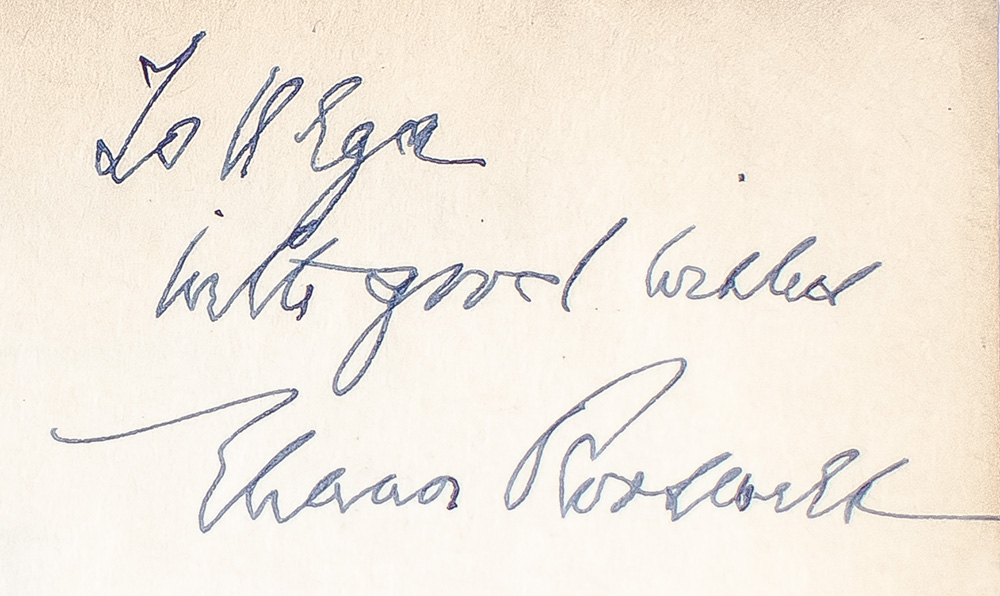 To
with good wishes
Eleanor Roosevelt